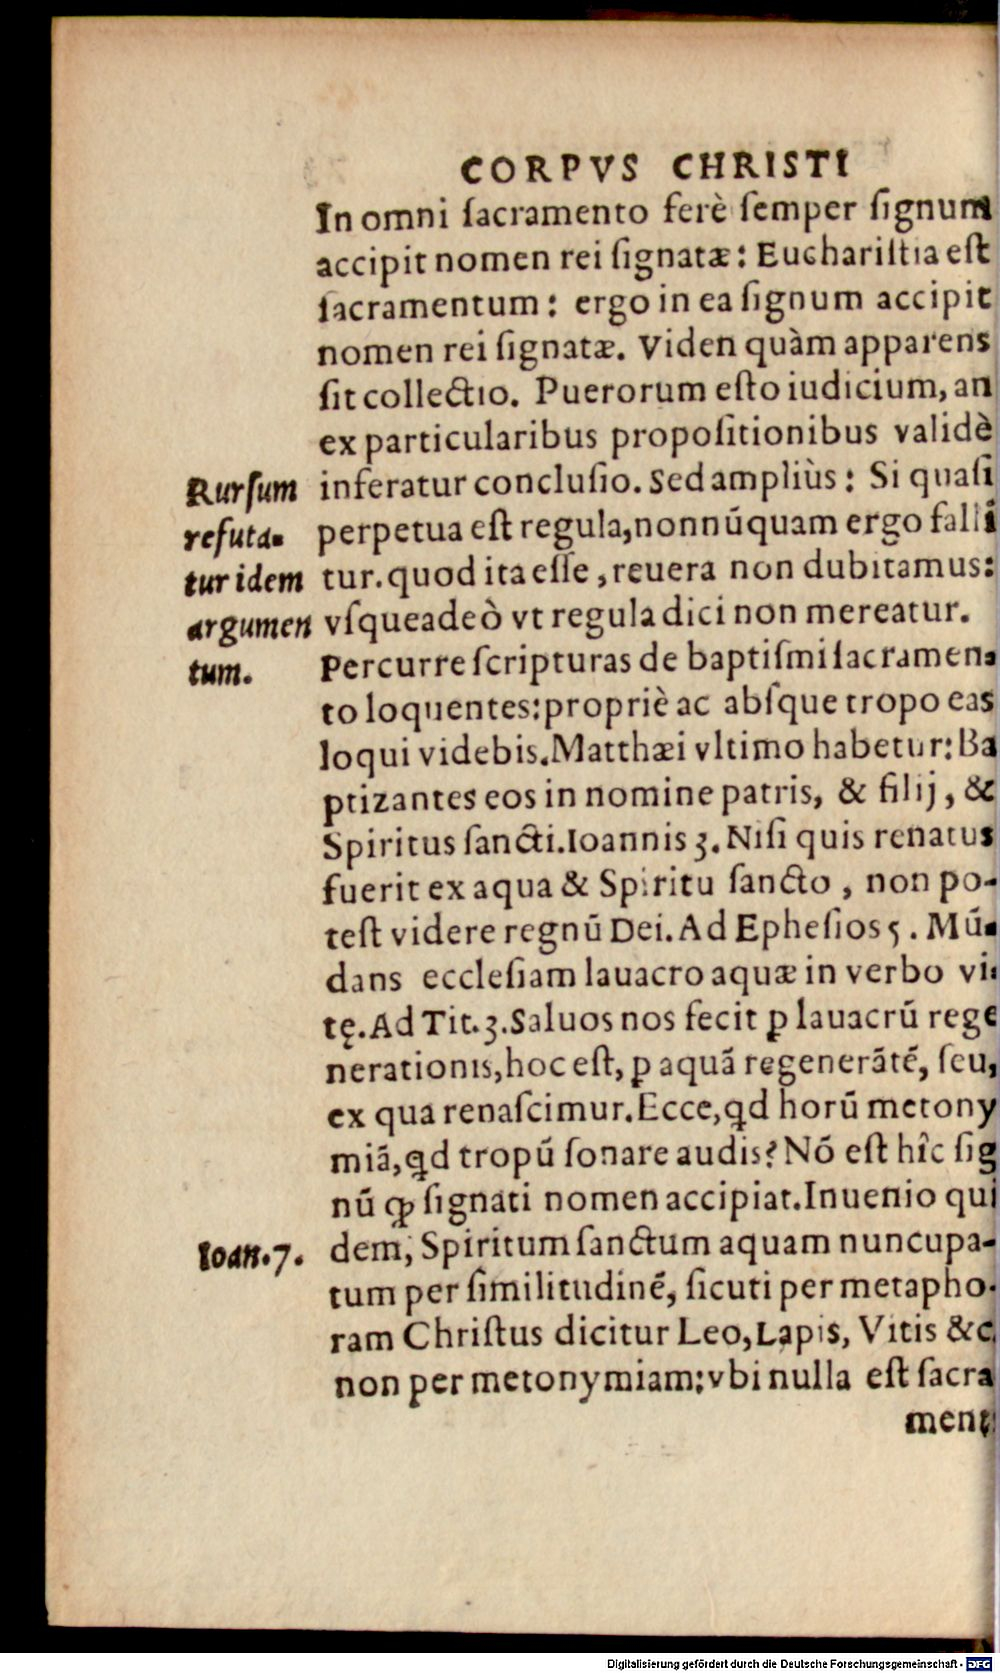 CORPVS CHRISTI
In omni ſacramento ferè ſemper ſignum
accipit nomen rei ſignatæ: Euchariſtia eſt
ſacramentum: ergo in ea ſignum accipit
nomen rei ſignatæ. Viden quàm apparens
ſit collectio. Puerorum eſto iudicium, an
ex particularibus propoſitionibus validè
inferatur concluſio. Sed ampliùs: Si quaſi
perpetua eſt regula, nonnūquam ergo falli
tur. quod ita eſſe, reuera non dubitamus:
vſqueadeò vt regula dici non mereatur.
Percurre ſcripturas de baptiſmi ſacramen-
to loquentes: propriè ac abſque tropo eas
loqui videbis. Matthæi vltimo habetur: Ba
ptizantes eos in nomine patris, & filij, &
Spiritus ſancti. Ioannis 3. Niſi quis renatus
fuerit ex aqua & Spiritu ſancto, non po-
teſt videre regnū Dei. Ad Epheſios 5. Mū-
dans eccleſiam lauacro aquæ in verbo vi-
tę. Ad Tit. 3. Saluos nos fecit ꝑ lauacrū rege
nerationis, hoc eſt, ꝑ aquā regenerātē, ſeu,
ex qua renaſcimur. Ecce, qd horū metony
miā, qd tropū ſonare audis? Nō eſt hîc ſig
nū ꝙ ſignati nomen accipiat. Inuenio qui
dem, Spiritum ſanctum aquam nuncupa-
tum per ſimilitudinē, ſicuti per metapho-
ram Chriſtus dicitur Leo, Lapis, Vitis &c.
non per metonymiam: vbi nulla eſt ſacra
ment
Rurſum
refuta-
tur idem
argumen
tum.
Ioan. 7.
Digitalisierung gefördert durch die Deutsche Forschungsgemeinschaft - DFG